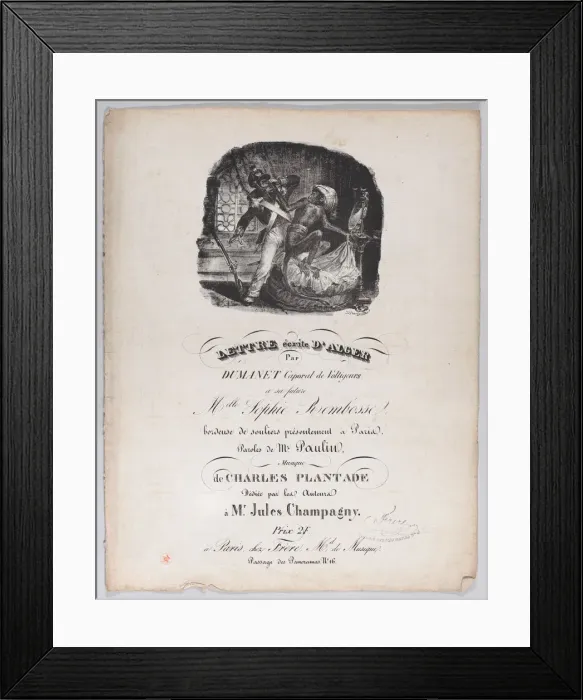 LETTRE écrite D'ALGER
Par
DUMANET Caporal de Voltigeurs
à sa future
Melle Sophie
bordeuse de souliers présentement à Paris,
Paroles de Mr Paulin,
Musique
de CHARLES PLANTADE
Dédiée par les Auteurs
à Mr Jules Champagny.
Prix 2f
à Paris, chez Frère, Md de Musique,
Passage des Panoramas No 16